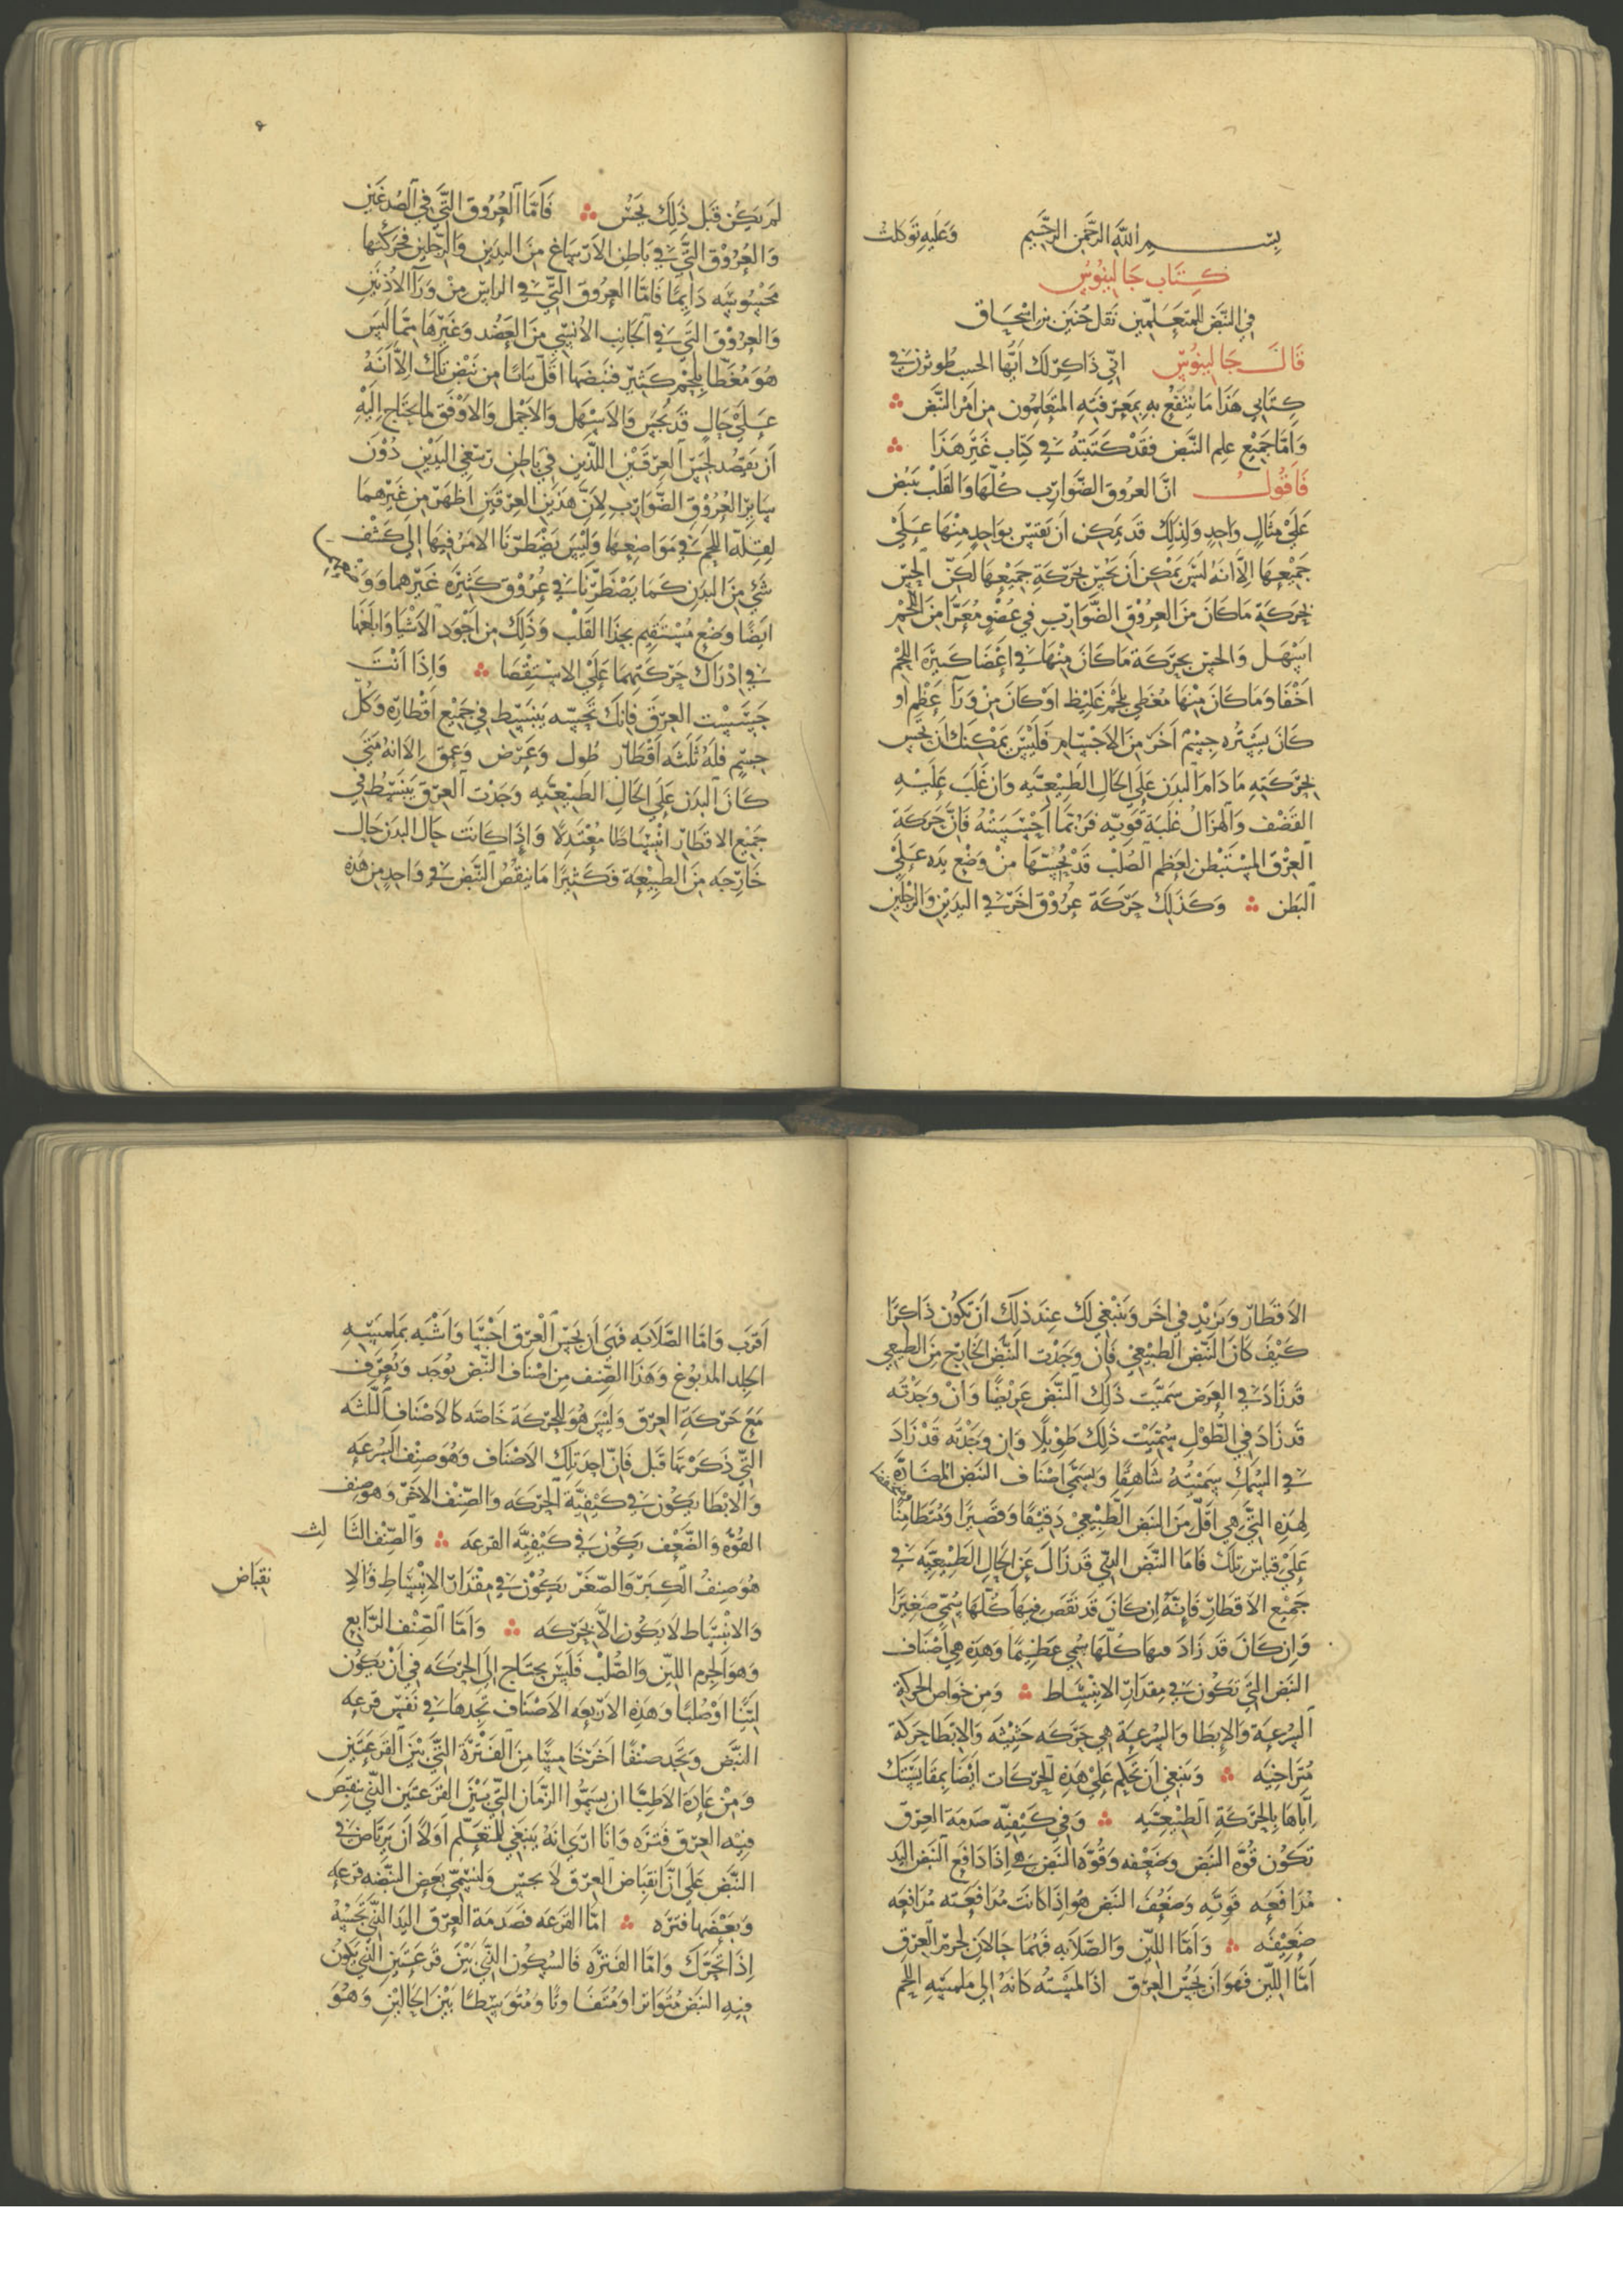 بسم الله الرحمن الرحيم وعليه توكلت
كتاب جالينوس
في النبض للمتعلمين نقل حنين بن اسحاق
قال جالينوس اني ذاكر لك ايها الحبيب طوثرن في
كتابي هذا ما ينتفع به بمعرفته المتعلمون من امر النبض
واما جميع علم النبض فقد كتبته في كتاب غير هذا
فاقول ان العروق الضوارب كلها والقلب ينبض
علي مثال واحد ولذلك قد يمكن ان نقيس بواحد منها علي
جميعها الا انه ليس يمكن ان نحس بحركة جميعها لكن الحس
بحركة ما كان من العروق الضوارب في عضو معرا من اللحم
اسهل والحس بحركة ما كان منها في اعضا كبيرة اللحم
اخفا وما كان منها مغطي بلحم غليظ او كان من ورا عظم او
كان يستره جسم اخر من الاجسام فليس يمكنك ان تحس
بحركته ما دام البدن علي الحال الطبيعيه وان غلب عليه
القضف والهزال غلبة قويه فربما احسسته فان حركة
العرق المستبطن لعظم الصلب قد يحسها من وضع يده علي
البطن وكذلك حركة عروق اخر في اليدين والرجلين
لم يكن قبل ذلك يحس فاما العروق التي في الصدغين
والعروق التي في باطن الارساغ من اليدين والرجلين فحركتها
محسوسه دايما فاما العروق التي في الراس من ورا الاذنين
والعروق التي في الجانب الانسي من العضد وغيرها مما ليس
هو مغطا بلحم كثير فنبضها اقل بيانا من نبض تلك الا انه
علي حال قد يحس والاسهل والاجمل والاوفق لما يحتاج اليه
ان يقصد لحس العرقين اللذين في باطن رسغي اليدين دون
ساير العروق الضوارب لان هذين العرقين اظهر من غيرهما
لقلة اللحم في مواضعها وليس يضطرنا الامر فيها الي كشف
شي من البدن كما يضطرنا في عروق كثيرة غيرهما
ايضا وضع مستقيم بحذا القلب وذلك من اجود الاشيا وابلغها
في ادراك حركتهما علي الاستقصا واذا انت
جسست العرق فانك تحسه ينبسط في جميع اقطاره وكل
جسم فله ثلثه اقطار طول وعرض وعمق الا انه متي
كان البدن علي الحال الطبيعيه وجدت العرق ينبسط في
جميع الاقطار انبساطا معتدلا واذا كانت حال البدن حال
خارجه من الطبيعة فكثيرا ما نيقص النبض في واحد من هذه
الاقطار ويزيد في اخر وينبغي لك عند ذلك ان تكون ذاكرا
كيف كان النبض الطبيعي فان وجدت النبض الخارج من الطبيعي
قد زاد في العرض سميت ذلك النبض عريضا وان وجدته
قد زاد في الطول سميت ذلك طويلا وان وجدته قد زاد
في السمك سميته شاهقا ويسمي اصناف النبض المضادة
لهذه التي هي اقل من النبض الطبيعي دقيقا وقصيرا ومتطامنا
علي قياس تلك فاما النبض التي قد زال عن الحال الطبيعيه في
جميع الاقطار فانه ان كان قد نقص فيها كلها سمي صغيرا
وان كان قد زاد فيها كلها سمي عظيما وهذه هي اصناف
النبض التي تكون في مقدار الانبساط ومن خواص الحركة
السرعة والابطا والسرعة هي حركه حثيثه والابطا حركة
متراخيه وينبغي ان تحكم علي هذه الحركات ايضا بمقايستك
اياها بالحركة الطبيعيه وفي كيفيه صدمة العرق
تكون قوة النبض وضعفه وقوة النبض هي اذا دافع النبض اليد
مدافعه قويه وضعف النبض هو اذا كانت مدافعته مدافعه
ضعيفه واما اللين والصلابه فهما حالان لجرم العرق
اما اللين فهو ان يحس العرق اذا لمسته كانه الي ملمسه اللحم
اقرب واما الصلابه فهي ان يحس العرق اجسا واشبه بملمسه
الجلد المدبوغ وهذا الصنف من اصناف النبض يوجد ويعرف
مع حركة العرق وليس هو للحركة خاصه كالاصناف الثلثه
التي ذكرتها قبل فان احد تلك الاصناف وهو صنف السرعه
والابطا يكون في كيفية الحركه والصنف الاخر وهو صنف
القوه والضعف يكون في كيفيه القرعه والصنف الثالث
هو صنف الكبر والصغر يكون في مقدار الانبساط والا نقباض
والانبساط لا يكون الا بحركه واما الصنف الرابع
وهو الجرم اللين والصلب فليس يحتاج الي الحركه في ان يكون
لينا او صلبا وهذه الاربعه الاصناف تجدها في نفس قرعه
النبض وتجد صنفا اخر خامسا من الفترة التي بين القرعتين
ومن عادة الاطبا ان يسموا الزمان التي بين القرعتين التي ينقبض
فيه العرق فتره وانا اري انه ينبغي للمتعلم اولا ان يرتاض في
النبض علي ان انقباض العرق لا يحس وليسمي بعض النبضه قرعه
وبعضها فتره اما القرعه فصدمة العرق اليد التي تحسه
اذا تحرك واما الفتره فالسكون التي بين قرعتين التي يكون
فيه النبض متواترا ومتفاوتا ومتوسطا بين الحالين وهو